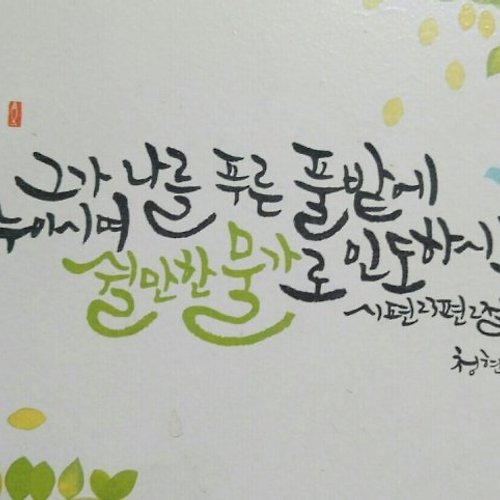 그가 나를 푸른 풀밭에
누이시며
쉴만한 물가로 인도하시
시편23편2절
청현